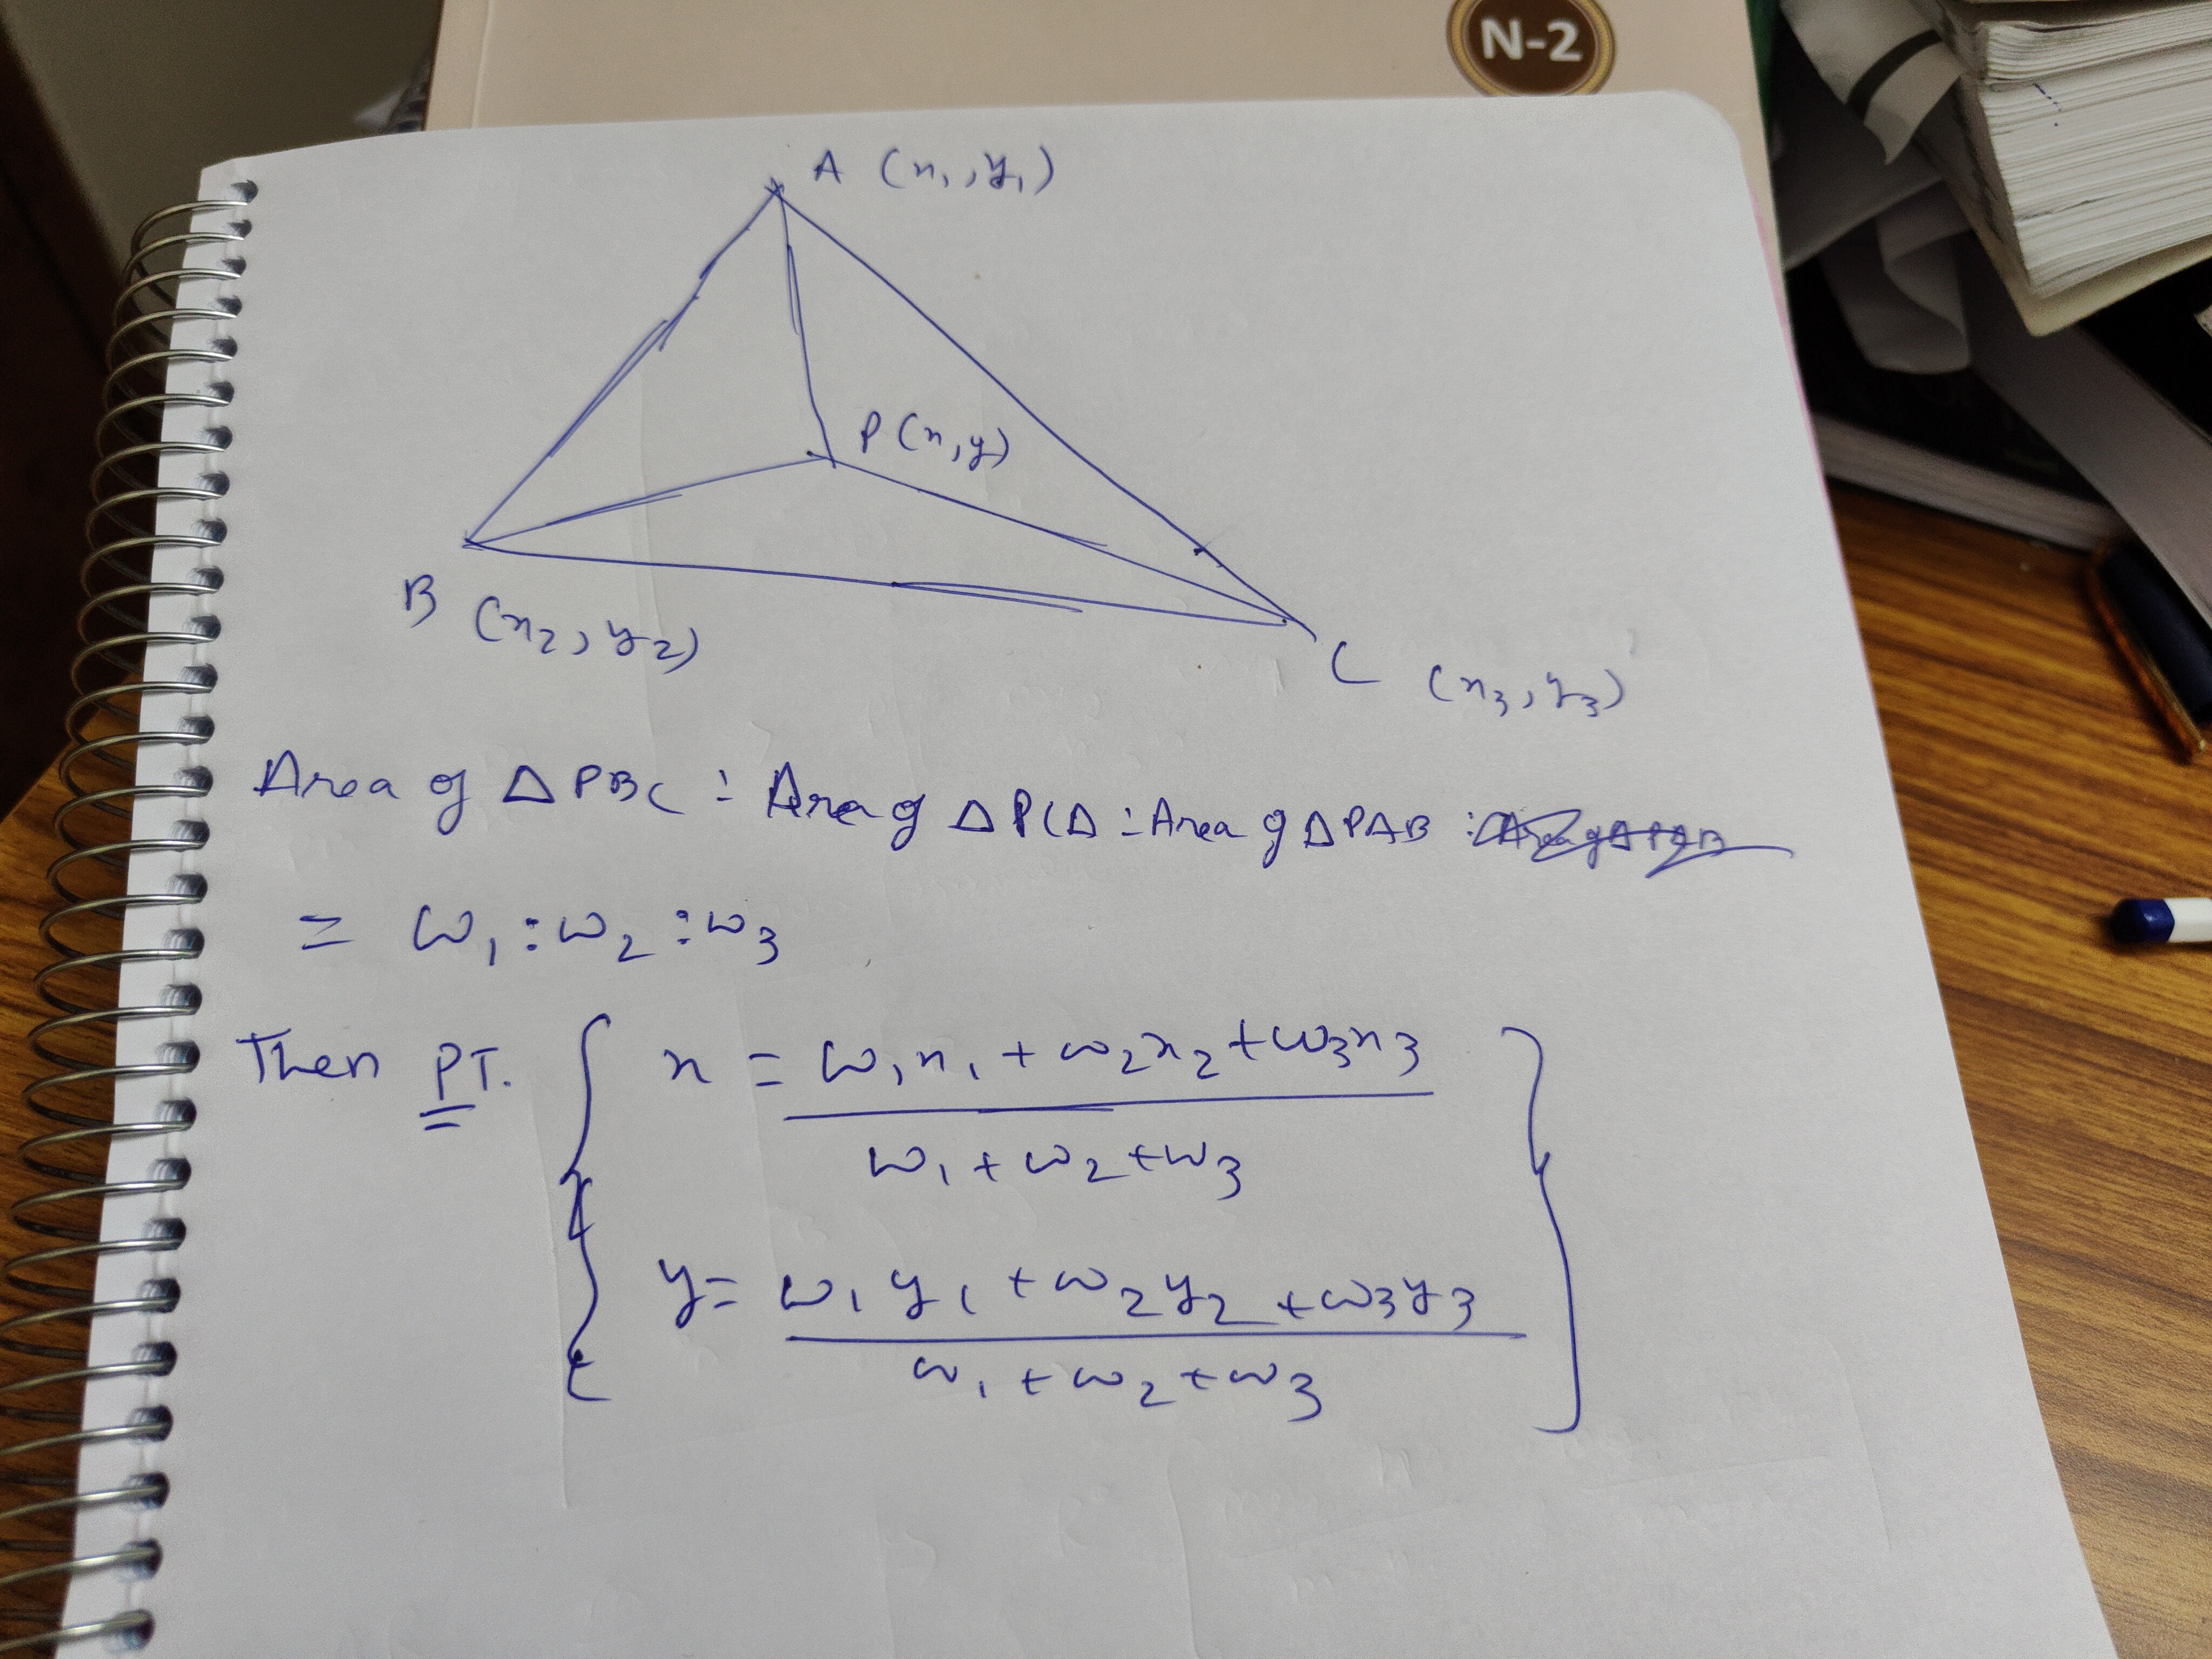 N-2
A (x₁, y₁)
P (x, y)
B (x₂, y₂)
C (x₃, y₃)
Area of Δ PBC : Area of Δ PCA : Area of Δ PAB :
= ω₁ : ω₂ : ω₃
Then PT. { x = ω₁x₁ + ω₂x₂ + ω₃x₃
ω₁ + ω₂ + ω₃
y = ω₁y₁ + ω₂y₂ + ω₃y₃ }
ω₁ + ω₂ + ω₃